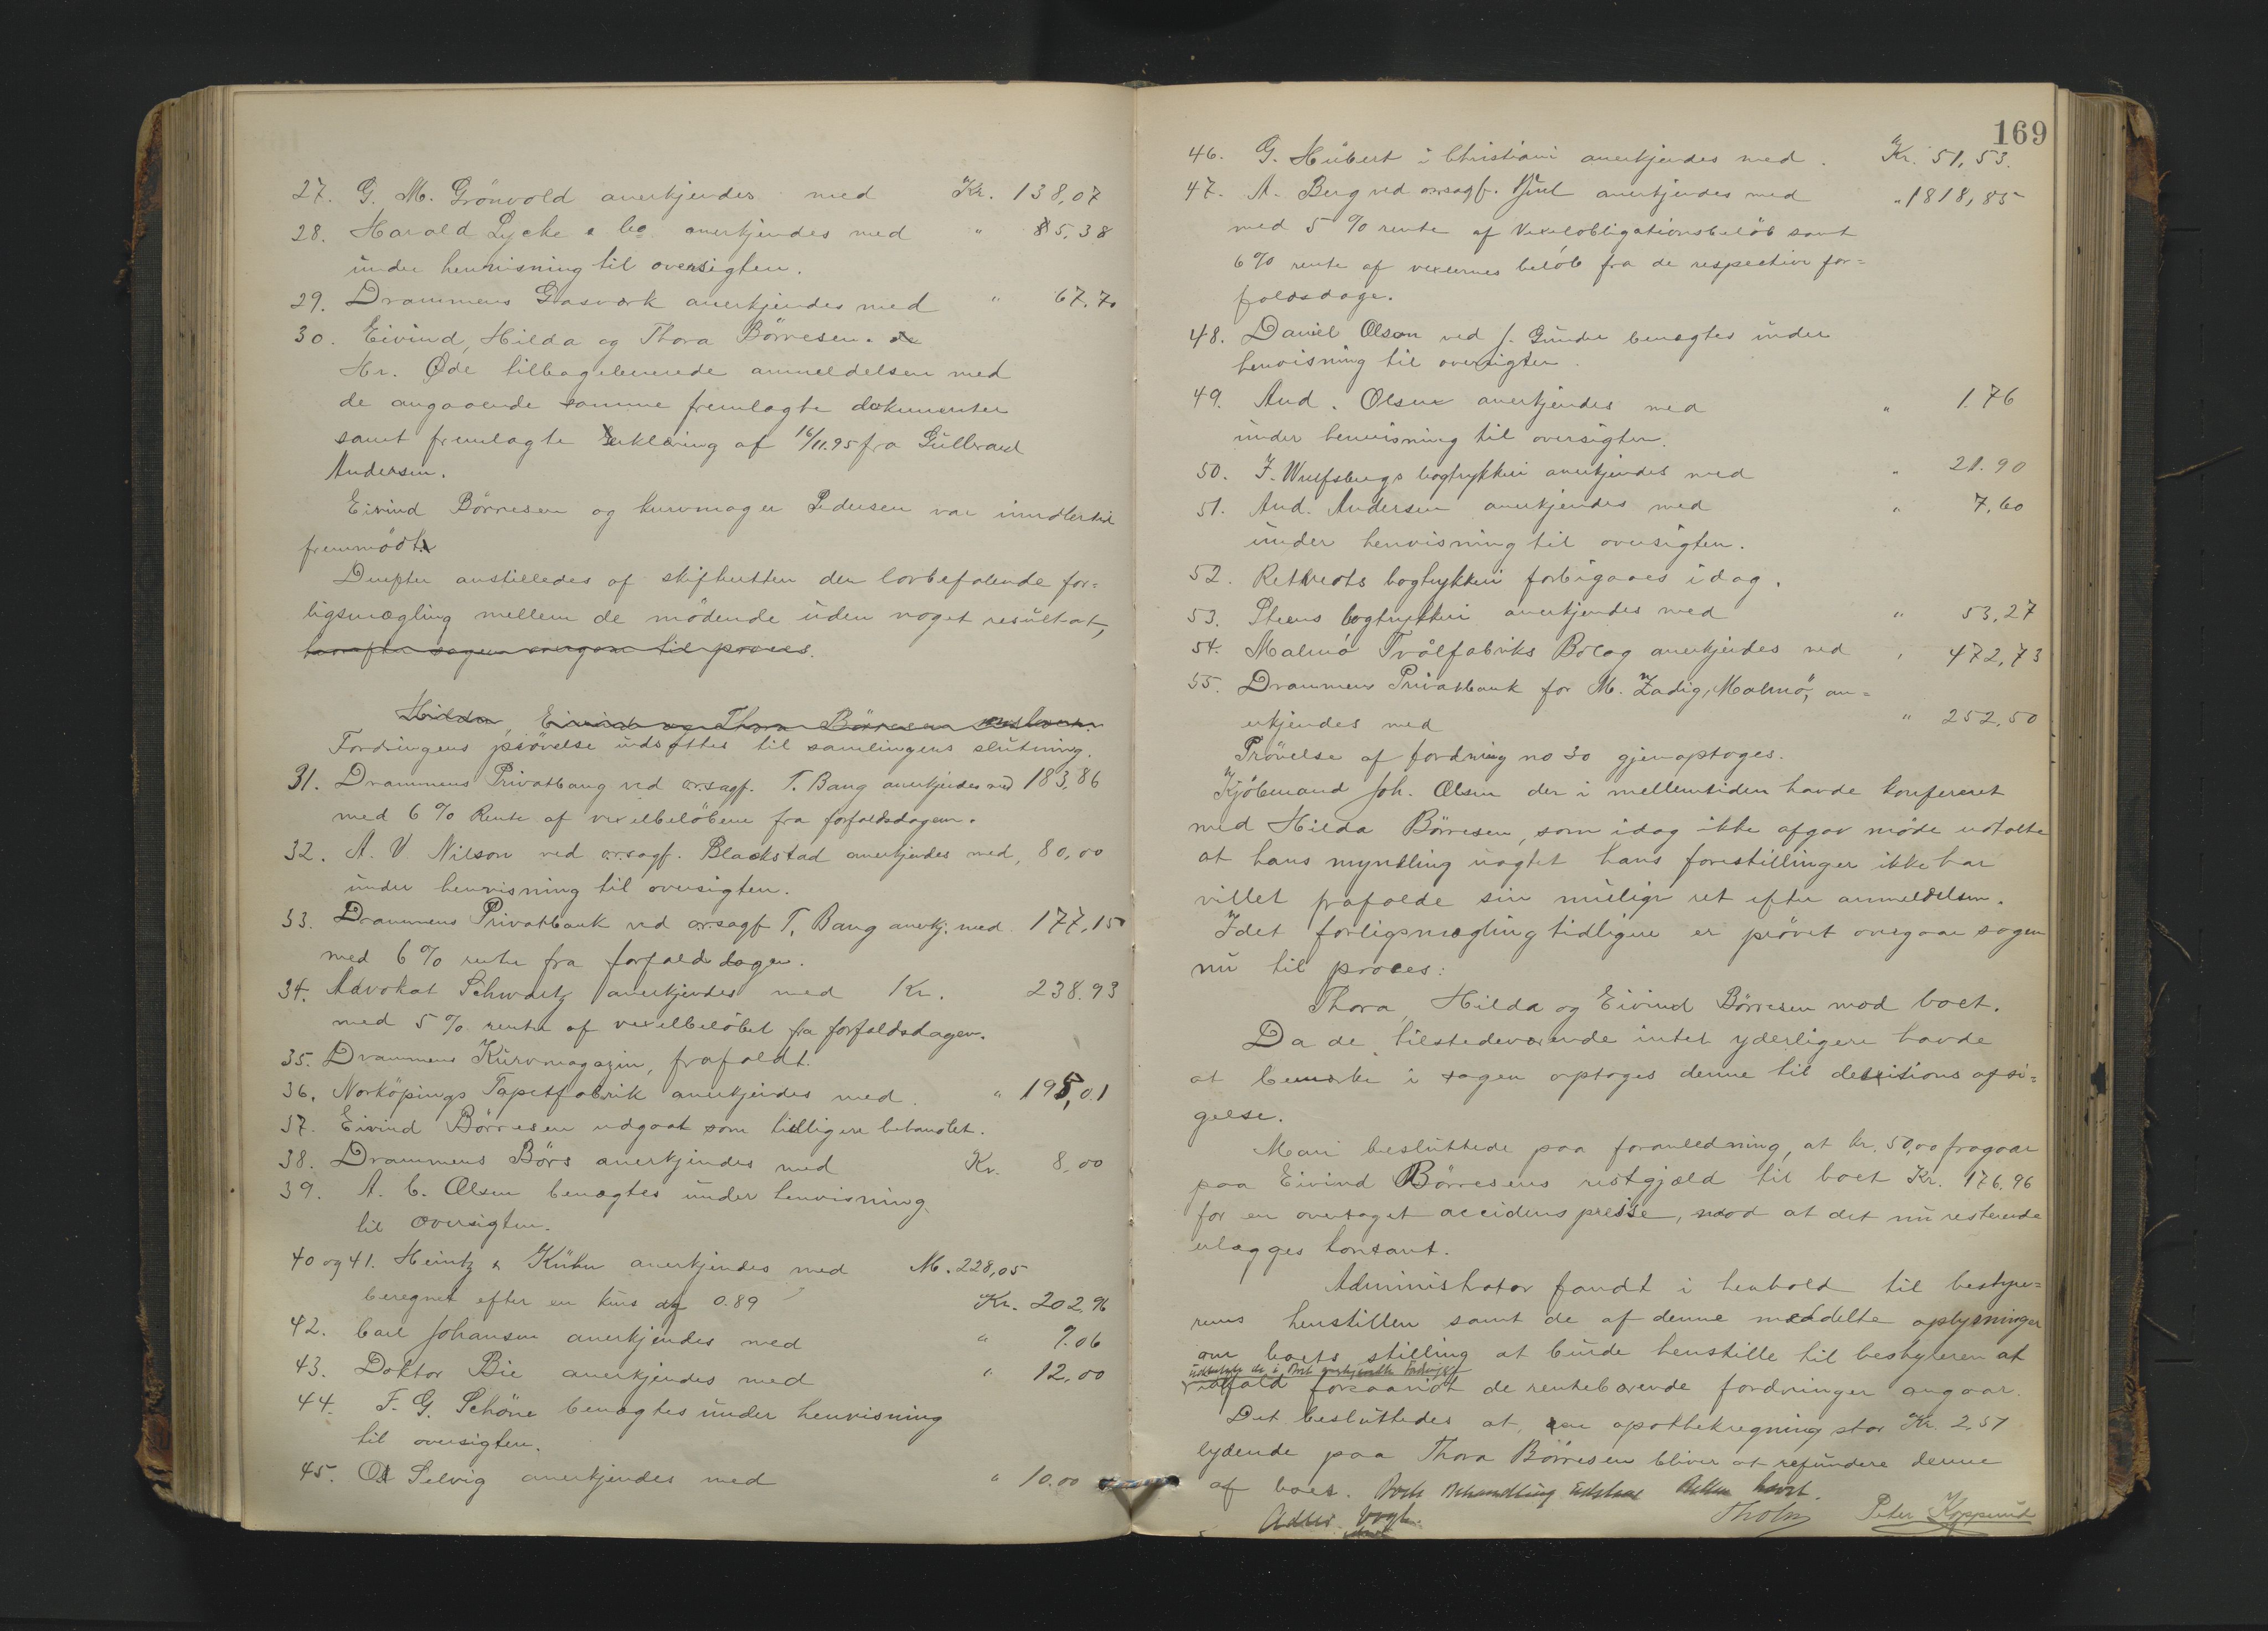 27. G. M. Grönvold anerkjendes med Kr. 138,07
28. Harald Lycke & Co. anerkjendes med " 85,38
under henvisning til oversigten.
29. Drammens Gasværk anerkjendes med " 67.70
30. Eivind, Hilda og Thora Börresen.
Hr. Øde tilbageleverede anmeldelsen med
de angaaende samme fremlagte dokumenter
samt fremlagte erklæring af 16/11.95 fra Gulbrand
Andersen.
Eivind Börresen og kurvmager Pedersen var imidlertid
fremmödt.
Derefter anstilledes af skifteretten den lovbefalende for=
ligsmægling mellem de mödende uden noget resultat,
hvorefter sagen overgaar til proces.
Hilda, Eivind og Thora Börresen
Fordringens prövelse udsættes til samlingens slutning.
31. Drammens Privatbang ved o.r.sagf. T. Bang anerkjendes med 183,86
med 6 % Rente af vexelbelöbene fra forfaldsdagen.
32. A. V. Nilson ved o.r.sagf. Blackstad anerkjendes med, 80,00
under henvisning til oversigten.
33. Drammens Privatbank ved o.r.sagf T. Bang anerkj. med 177,15
med 6 % rente fra forfalddagen.
34. Advokat Schwartz anerkjendes med Kr. 238.93
med 5 % rente af vexelbelöbet fra forfaldsdagen.
35. Drammens Kurvmagazin, frafaldt.
36. Norköpings Tapetfabrik anerkjendes med. " 195,01
37. Eivind Börresen udgaat som tidligere behandlet.
38. Drammens Börs anerkjendes med Kr. 8,00
39. A. C. Olsen benægtes under henvisning
til oversigten.
40 og 41. Heintz & Kühn anerkjendes med M. 228,05
beregnet efter en kurs af 0.89 Kr. 202,96
42. Carl Johansen anerkjendes med " 7.06
43. Doktor Bie anerkjendes med " 12,00
44. F. G. Schöne benægtes under henvisning
til oversigten.
45. Ol Selvig anerkjendes med " 10.00
169
46. G. Hübert i Christiani anerkjendes med. Kr. 51,53.
47. A. Berg ved o.r.sagf. Juul anerkjendes med " 1818,85
med 5 % rente af Vexelobligationsbelöb samt
6 % rente af vexlernes belöb fra de respective for=
faldsdage.
48. Daniel Olson ved J. Gunder benægtes under
henvisning til oversigten.
49. And. Olsen anerkjendes med " 1.76
under henvisning til oversigten.
50. J. Wulfsbergs bogtrykkeri anerkjendes med " 21.90
51. And. Andersen anerkjendes med " 7,60
under henvisning til oversigten.
52. bogtrykkeri forbigaaes idag.
53. Steens bogtrykkeri anerkjendes med " 53,27
54. Malmö Tvålfabriks Bolag anerkjendes med " 472,73
55. Drammens Privatbank for M. Zadig, Malmö, an=
erkjendes med " 252,50
Prövelse af fordring no 30 gjenoptoges.
Kjöbmand Joh. Olsen der i mellemtiden havde konfereret
med Hilda Börresen, som idag ikke afgav möde udtalte
at hans myndling uagtet hans forestillinger ikke har
villet frafalde sin mulige ret efter anmeldelsen.
Idet forligsmægling tidligere er prövet overgaar sagen
nu til proces:
Thora, Hilda og Eivind Börresen mod boet.
Da de tilstedeværende intet yderligere havde
at bemerke i sagen optoges denne til decisions afsi=
gelse.
Man besluttede paa foranledning, at kr. 50,00 fragaar
paa Eivind Börresens restgjæld til boet Kr. 176.96
for en overtaget accidenspresse, mod at det nu resterende
erlægges kontant.
Administrator fandt i henhold til bestyre=
rens henstillen samt de af denne meddelte oplysninger
om boets stilling at burde henstille til bestyreren at
udbetale de i Boet anerkjendte Fordringer
ialfald forsaavidt de rentebærende fordringer angaar.
Det besluttedes at, en apothekregning stor Kr. 2,51
lydende paa Thora Börresen bliver at refundere denne
af boet. Boets Behandling Retten hævet.
Vogt. Tholm Peter Koppund